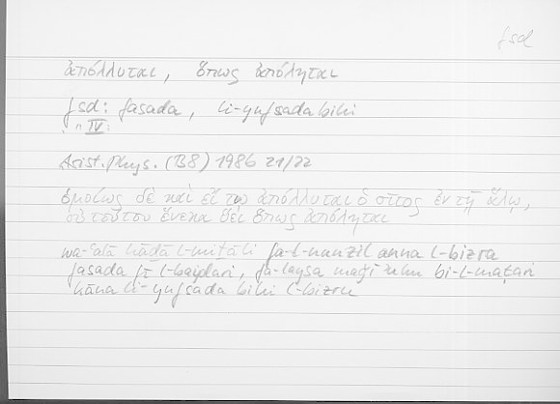 fsd
ἀπόλλυται, ὅπως ἀπόληται
fsd: fasada, li-yufsada bihi
" IV:
Arist. Phys. (B8) 1986 21/22
ὁμοίως δὲ καὶ εἴ τῳ ἀπόλλυται ὁ σῖτος ἐν τῇ ἅλῳ,
οὐ τούτου ἕνεκα ὕει ὅπως ἀπόληται
wa-ʿalā hāḏā l-miṯāli fa-l-nunzil anna l-bizra
fasada fī l-baydari, fa-laysa maǧīʾuhu bi-l-maṭari
kāna li-yufsada bihi l-bizru